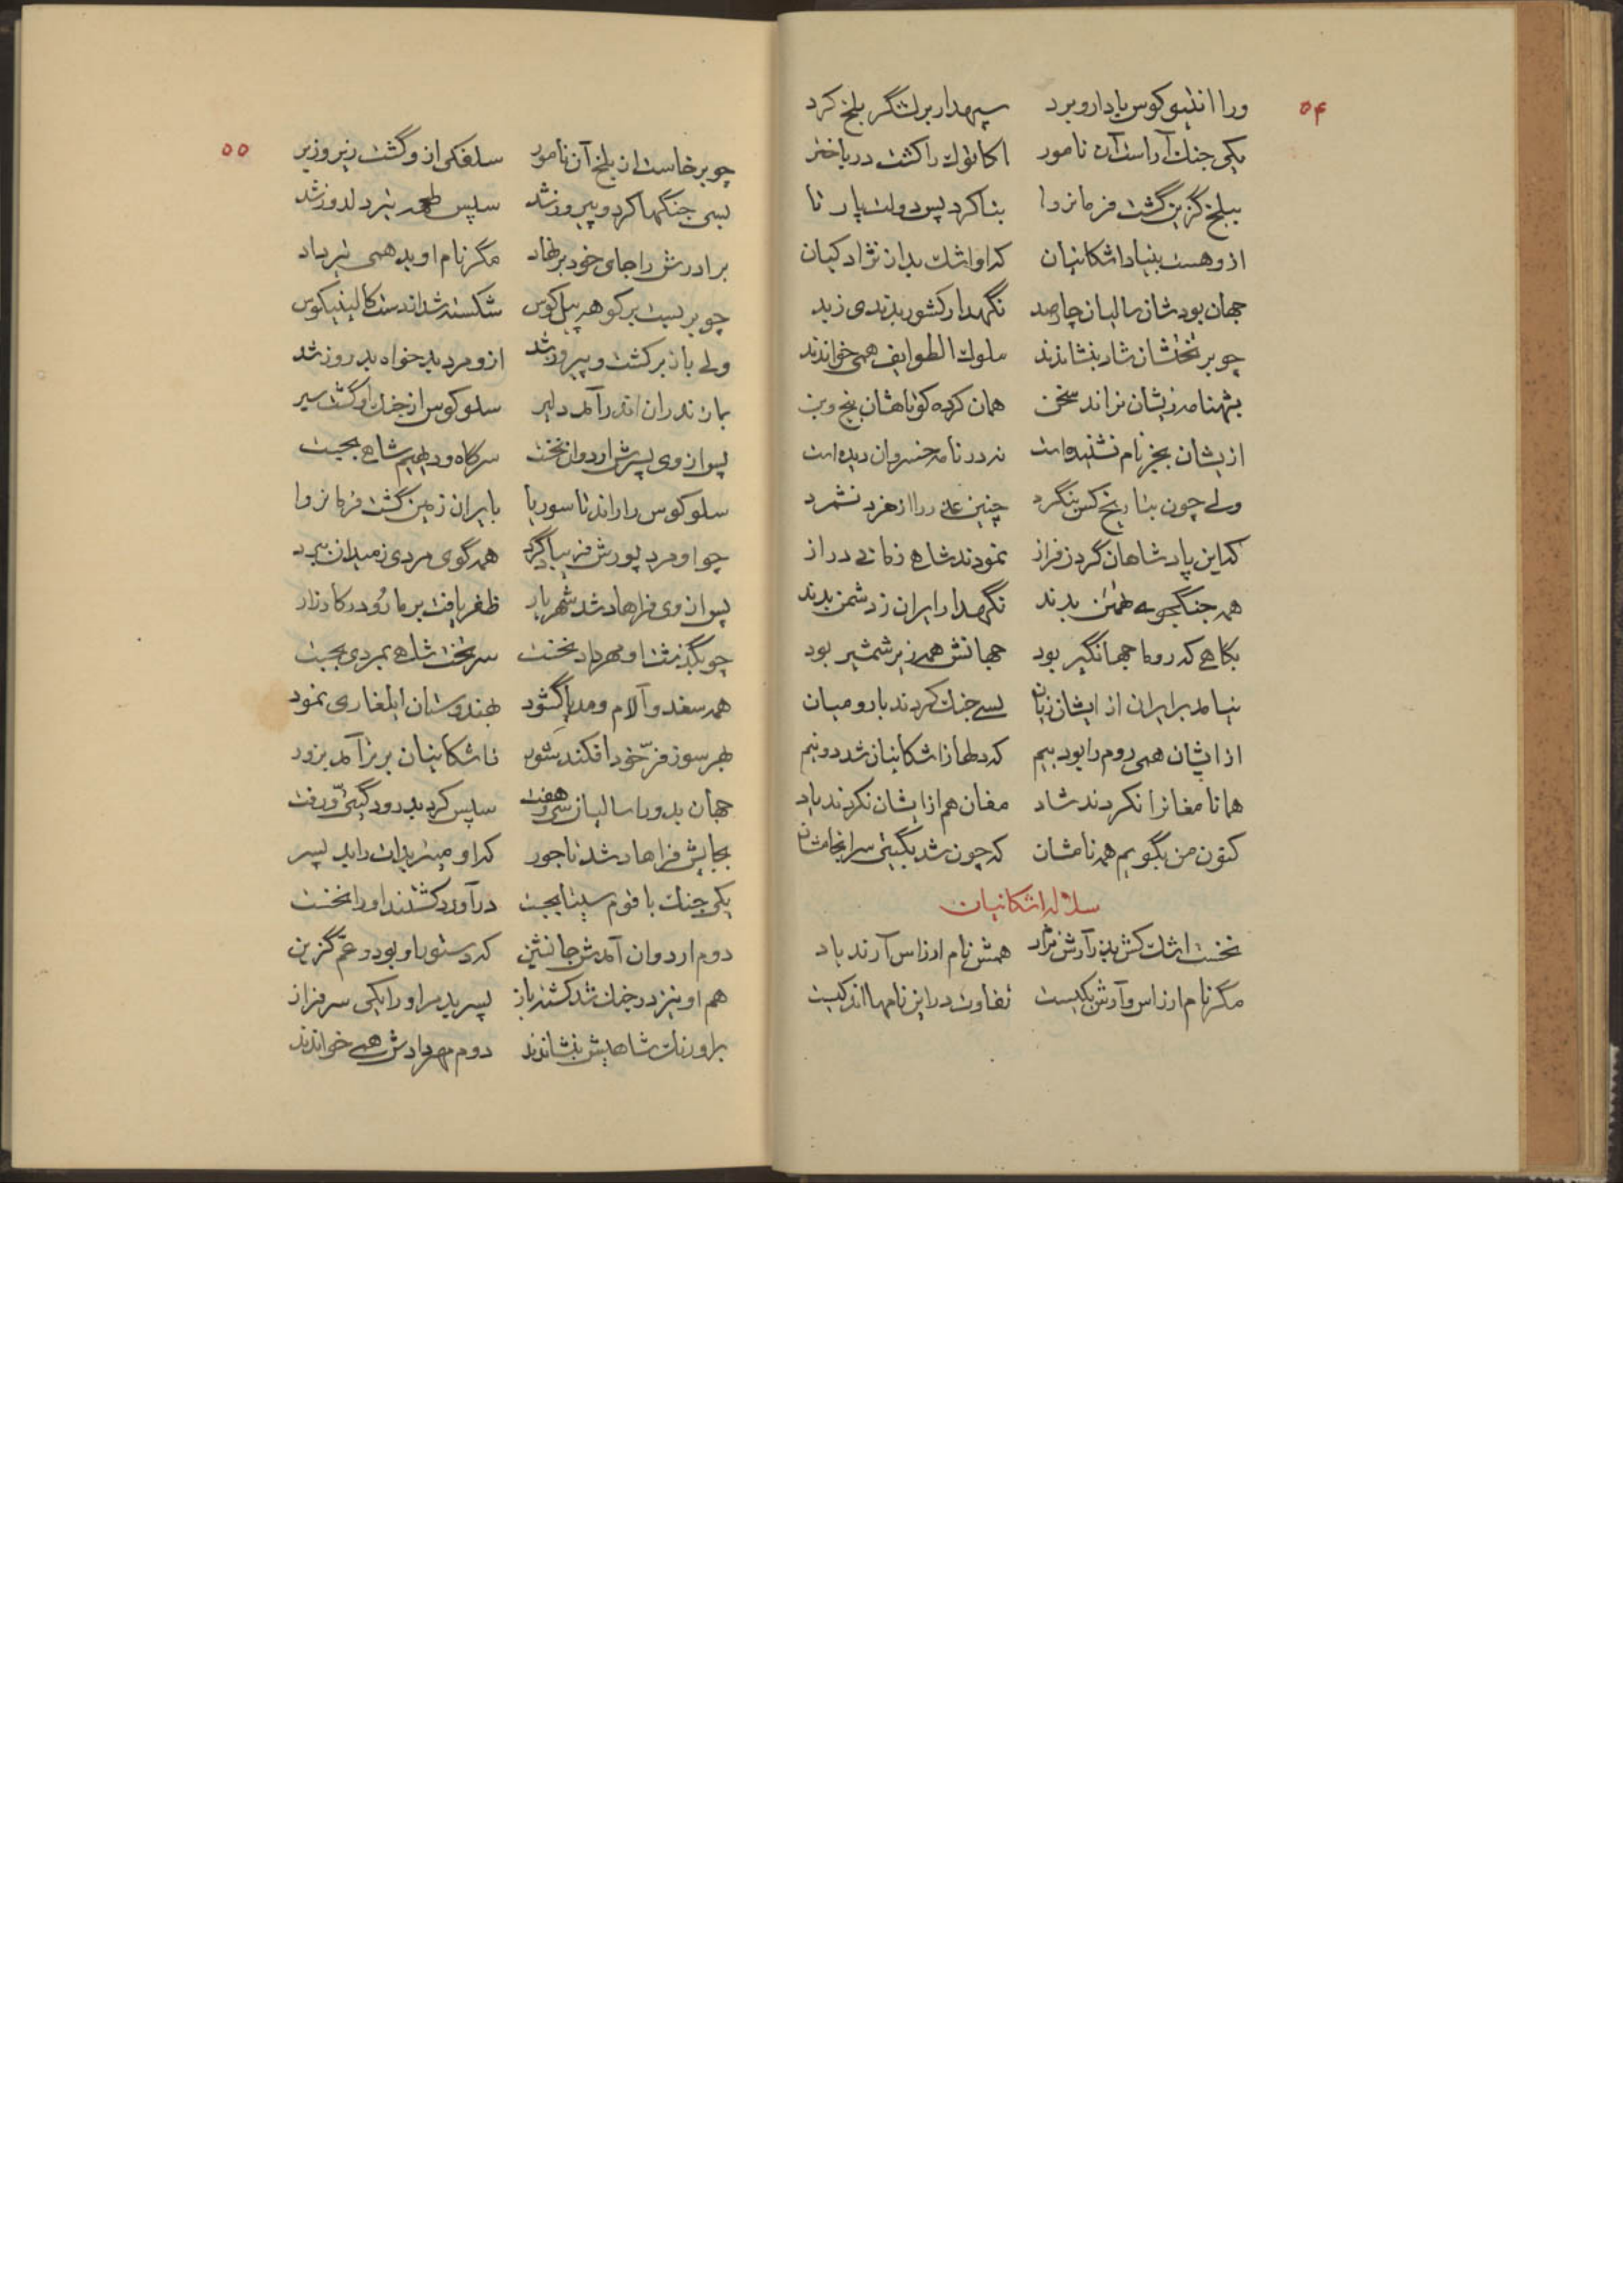 ۵۴
ورا انتیوکوس با دار و برد سپهدار بر لشگر بلخ کرد
یکی جنگ آراست آن نامور اکاتولک را کشت در باختر
ببلخ گزین گشت فرمانروا بنا کرد پس دولت پارتا
ازو هست بنیاد اشکانیان که او اشک بد از نژاد کیان
جهان بود شان سالیان چارصد نگهدار کشور بدند ی ز بد
چو بر تختشان شاد بنشاندند ملوک الطوایف همی خواندند
بشهنامه زیشان نراند سخن همان کرده کوتاهشان بیخ و بن
ازیشان بجز نام نشنیده است نه در نامه خسروان دیده است
ولی چون بتاریخ کس بنگرد چنین عذر را از خرد نشمرد
که این پادشاهان گردن فراز نمودند شاهی زمانی دراز
همه جنگجوی و تهمتن بدند نگهدار ایران ز دشمن بدند
بگاهی که روما جهانگیر بود جهانش همه زیر شمشیر بود
نیامد بر ایران از ایشان زیان بسی جنگ کردند با رومیان
از ایشان همی روم را بود بیم که دلها ز اشکانیان شد دو نیم
همانا مغانرا نکردند شاد مغان هم از ایشان نکردند یاد
کنون من بگویم همه نامشان که چون شد بگیتی سرانجامشان
سلاله اشکانیان
نخست اشک کش بد ز آرش نژاد همش نام ارزاس آرند یاد
مگر نام ارزاس و آرش یکیست تفاوت در این نامها اندکیست
۵۵
چو برخاست از بلخ آن نامور سلفکی ازو گشت زیر و زبر
بسی جنگها کرد و پیروز شد سپس طعمه تیر دلدوز شد
برادرش را جای خود بر نهاد مگر نام او بد همی تیرداد
چو بر بست بر کوهه پیل کوس شکسته شد از دست کالینیکوس
ولی باز برگشت و پیروز شد ازو مرد بدخواه بد روز شد
بمازندران اندر آمد دلیر سلوکوس از جنگ او گشت سیر
پس از وی پسرش اردوان نخست سرگاه و دیهیم شاهی بجست
سلوکوس را راند تا سوریا بایران زمین گشت فرمانروا
چو او مرد پورش فریاپاکرد همه گوی مردی ز میدان ببرد
پس از وی فراهاد شد شهریار ظفر یافت بر ماردُ در کارزار
چو بگذشت او مهرداد نخست سر تخت شاهی بمردی بجست
همه سغد و آلام و مدیا گشود بهندوستان ایلغاری نمود
بهر سوز فرّ خود افکند شور ناشکانیان برتر آمد بزور
جهان بد ورا سالیان سی و هفت سپس کرد بدرود گیتیّ و رفت
بجایش فراهاد شد تاجور که او میتریدات را بد پسر
یکی جنگ با قوم سیتا بجست درآورد کشتند او را نخست
دوم اردوان آمدش جانشین که دستور او بود و عمّ گزین
هم او نیز در جنگ شد کشته باز پسر بد مر او را یکی سرفراز
بر اورنگ شاهیش بنشاندند دوم مهردادش همی خواندند